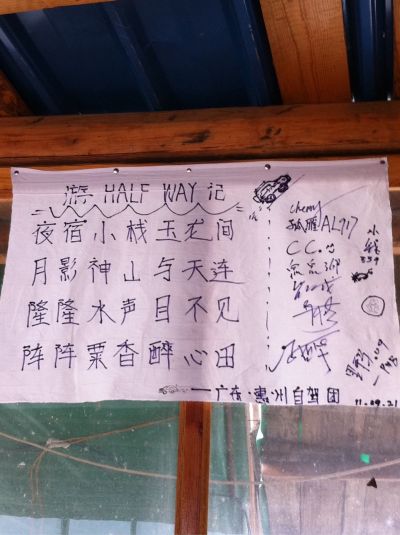 游 HALF WAY 记
夜宿小栈玉龙间
月影神山与天连
隆隆水声目不见
阵阵粟香醉心田
cherry
AL717
C C.
——广东·惠州自驾团
11.09.21